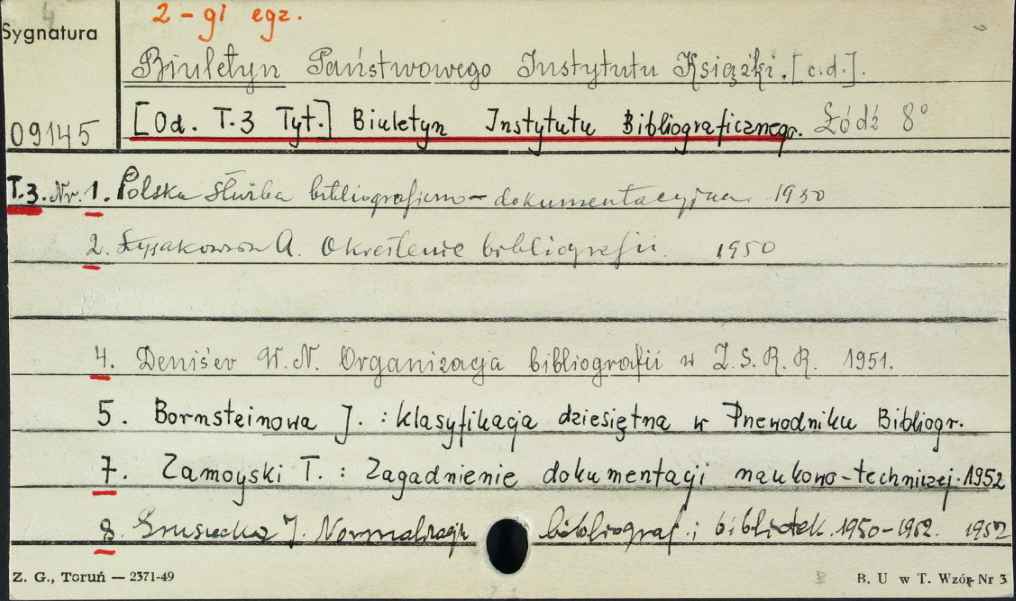 2-gi egz.
Sygnatura
Biuletyn Państwowego Instytutu Książki. [c.d.].
09145 [Od. T.3 Tyt.] Biuletyn Instytutu Bibliograficznego. Łódź 8°
T.3. Nr. 1. Polska służba bibliograficzno-dokumentacyjna. 1950
2. Łysakowski A. Określenie bibliografii. 1950
4. Denis'ev W. N. Organizacja bibliografii w Z.S.R.R. 1951.
5. Bornsteinowa J. : Klasyfikacja dziesiętna w Przewodniku Bibliogr.
7. Zamoyski T. : Zagadnienie dokumentacji naukowo-techniczej. 1952
8. Grusiecka J. Normalizacja bibliograf. i bibliotek. 1950-1952. 1952
Z. G., Toruń — 2371-49
B. U w T. Wzór Nr 3